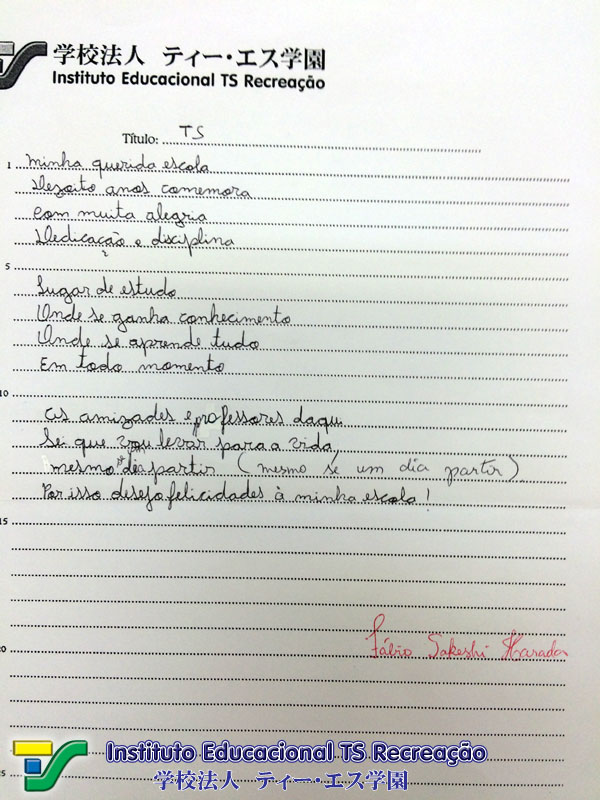 学校法人 ティー・エス学園
Instituto Educacional TS Recreação
Título: TS
1 Minha querida escola
Dezoito anos comemora
Com muita alegria
Dedicação e disciplina
5
Lugar de estudo
Onde se ganha conhecimento
Onde se aprende tudo
Em todo momento
10
As amizades e professores daqui
Sei que vou levar para a vida
mesmo partir (mesmo se um dia partir)
Por isso desejo felicidades à minha escola!
15
20 Fábio Takeshi Harada
Instituto Educacional TS Recreação
25 学校法人 ティー・エス学園